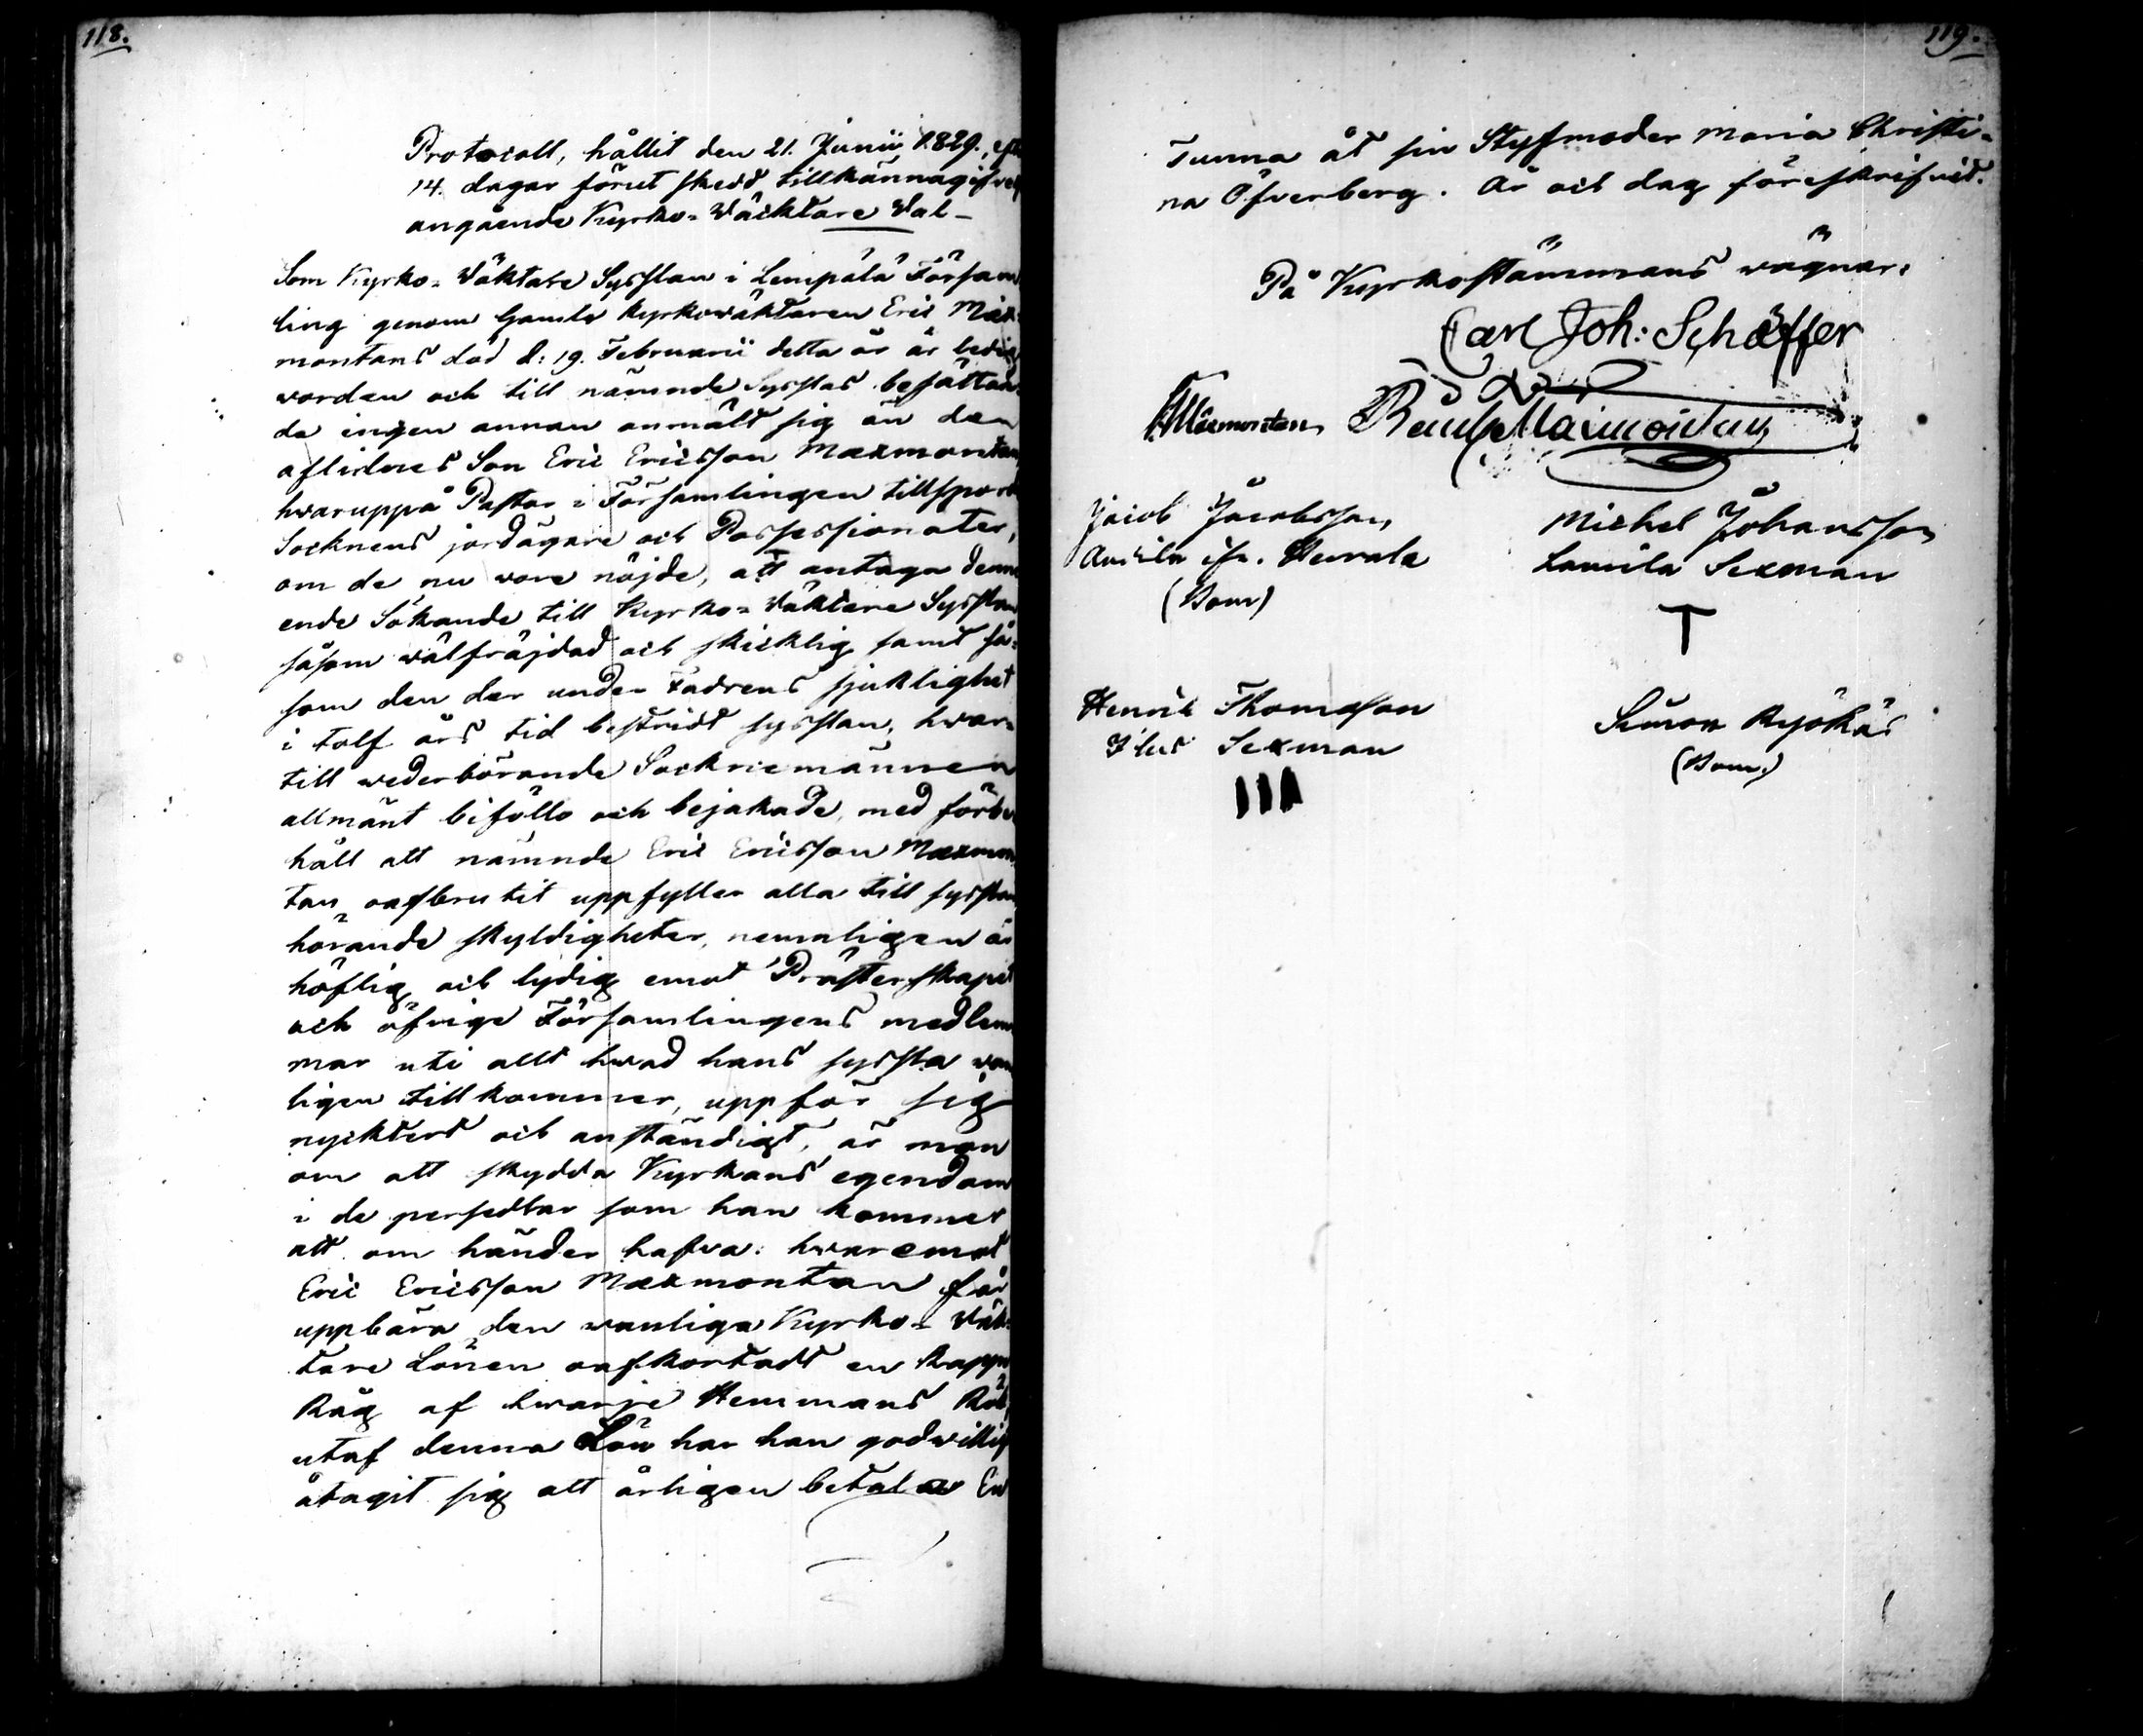 118.
Protocoll, hållit den 21. Junii 1829., efter
14. dagar förut skedd tillkännagifvet
angående Kyrko-Wäcktare Val-
Som Kyrko-Wäktare Sysslan i Lempälä Försam
ling genom Gamla kyrkowäktaren Eric Max-
montans död d: 19. Februarii detta år är ledig
worden och till nämnde Sysslas besättan-
de ingen annan anmält sig än den
aflidnes Son Eric Ericsson Maxmontan
hwaruppå Pastor i Församlingen tillspord
Socknens jordägare och Possessionater,
om de nu wore nöjde, att antaga denne
ende Sökande till Kyrko-Wäktare Sysslan
såsom wälfräjdad och skicklig samt så-
som den der under Fadrens sjuklighet
i tolf års tid bestridt sysslan, hwar-
till wederbörande Socknemännen
allmänt biföllo och bejakade, med förbe
håll att nämnde Eric Ericsson Maxmon
tan oafbrutit uppfyller alla till sysslan
hörande skyldigheter, nemnligen är
höflig och lydig emot Prästerskapet
och öfrige Församlingens medlem
mar uti allt hwad hans syssla wan
ligen tillkommer, uppför sig
nycktert och anständigt, är mån
om att skydda Kyrkans egendom
i de persedlar som han kommer
att om händer hafva: hwaremot
Eric Ericsson Maxmontan får
uppbära den wanliga Kyrko-Wäk-
tare Lönen oafkortadt en kappe
Råg af hwarje Hemmans Rök,
utaf denna Lön har han godwillig
åtagit sig att årligen betala En
119.
Tunna åt sin Styfmoder Maria Christi-
na Öfverberg. År och dag föreskrifvit.
På Kyrkostämmans wägnar:
Carl Joh: Schæffer
Maxmontan
Jacob Jacobsson
Michel Johansson
Anckila Herrala
Lamila Sexman
(Bom)
T
Henrik Thomasson
Simon Ryökäs
Sexman
(Bom.)
III